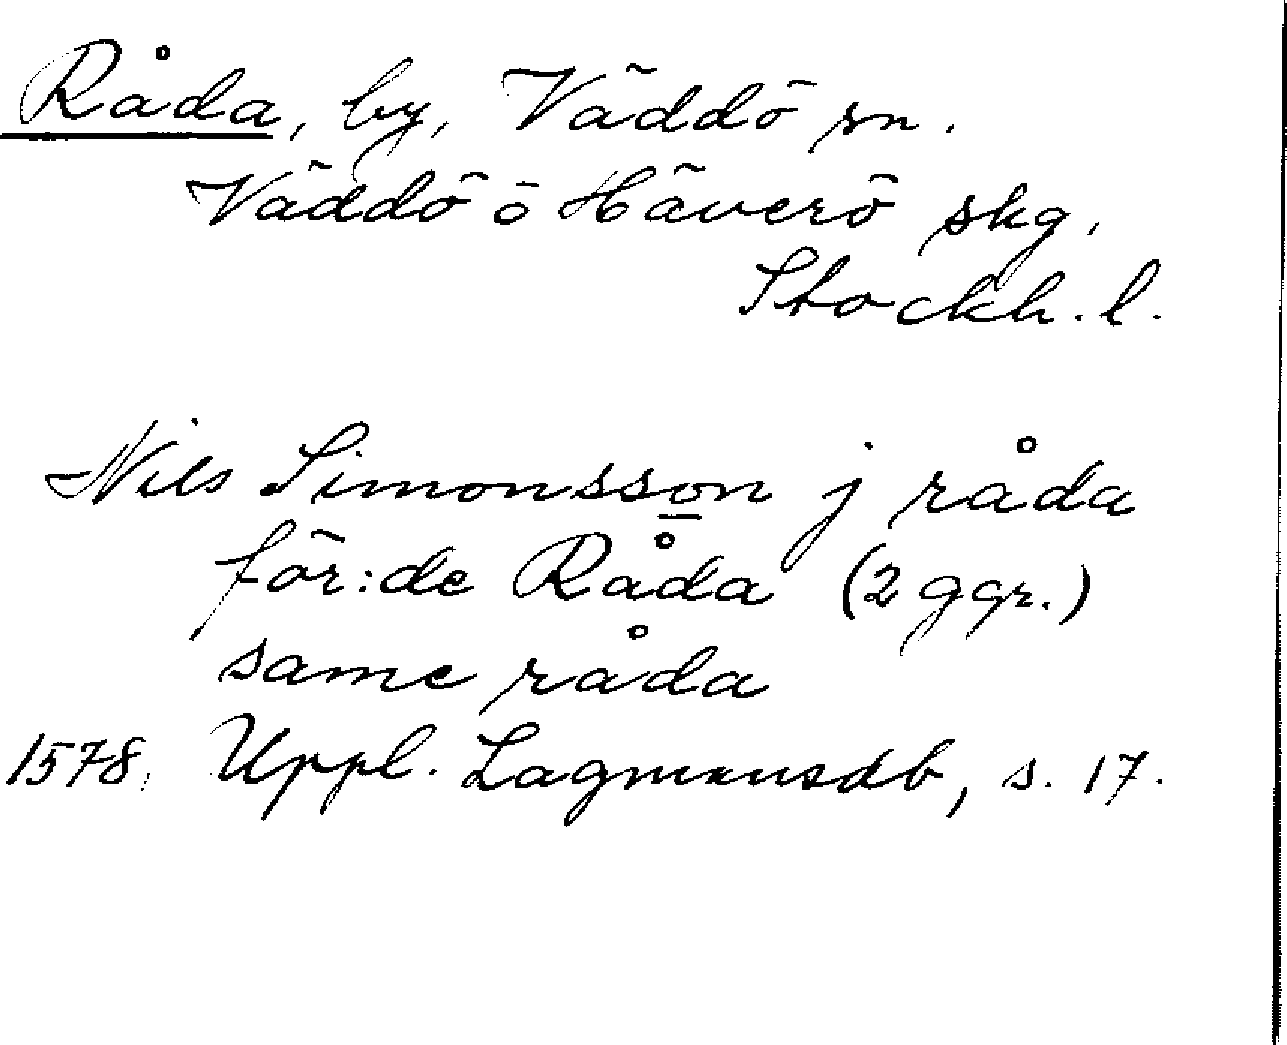 Råda, by, Väddö sn.
Väddö o Häverö skg.
Stockh. l.
Nils Simonsson j råda
för:de Råda (2 ggr.)
same råda
1578. Uppl. Lagmansdb, s. 17.